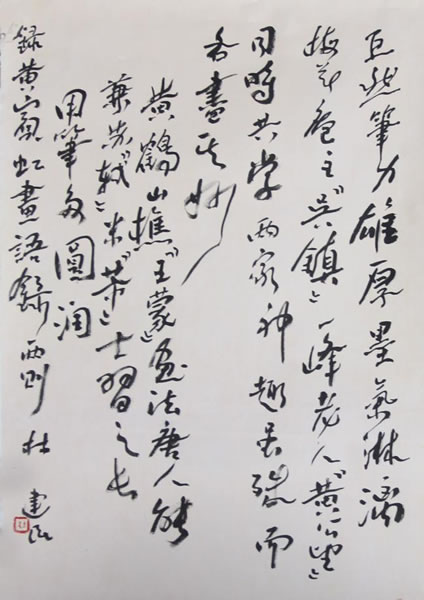 巨然筆力雄厚墨氣淋漓
梅花庵主『吳鎮』一峰老人『黃公望』
同時共學兩家神趣各殊而
各盡其妙
黃鶴山樵『王蒙』畫法唐人能
兼『軾』米『芾』士習之長
用筆多圓潤
錄黃賓虹畫語錄兩則 杜建